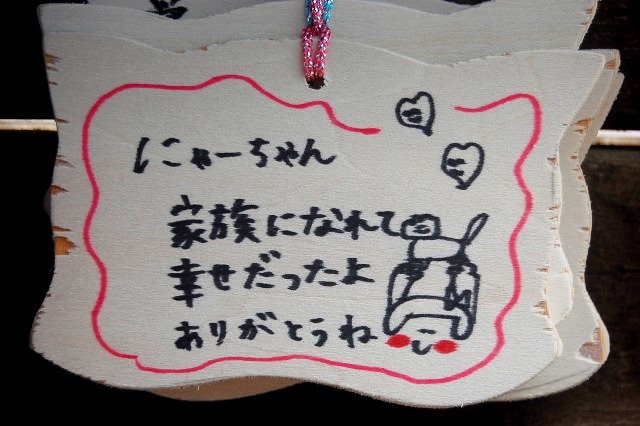 にゃーちゃん
家族になれて
幸せだったよ
ありがとうね